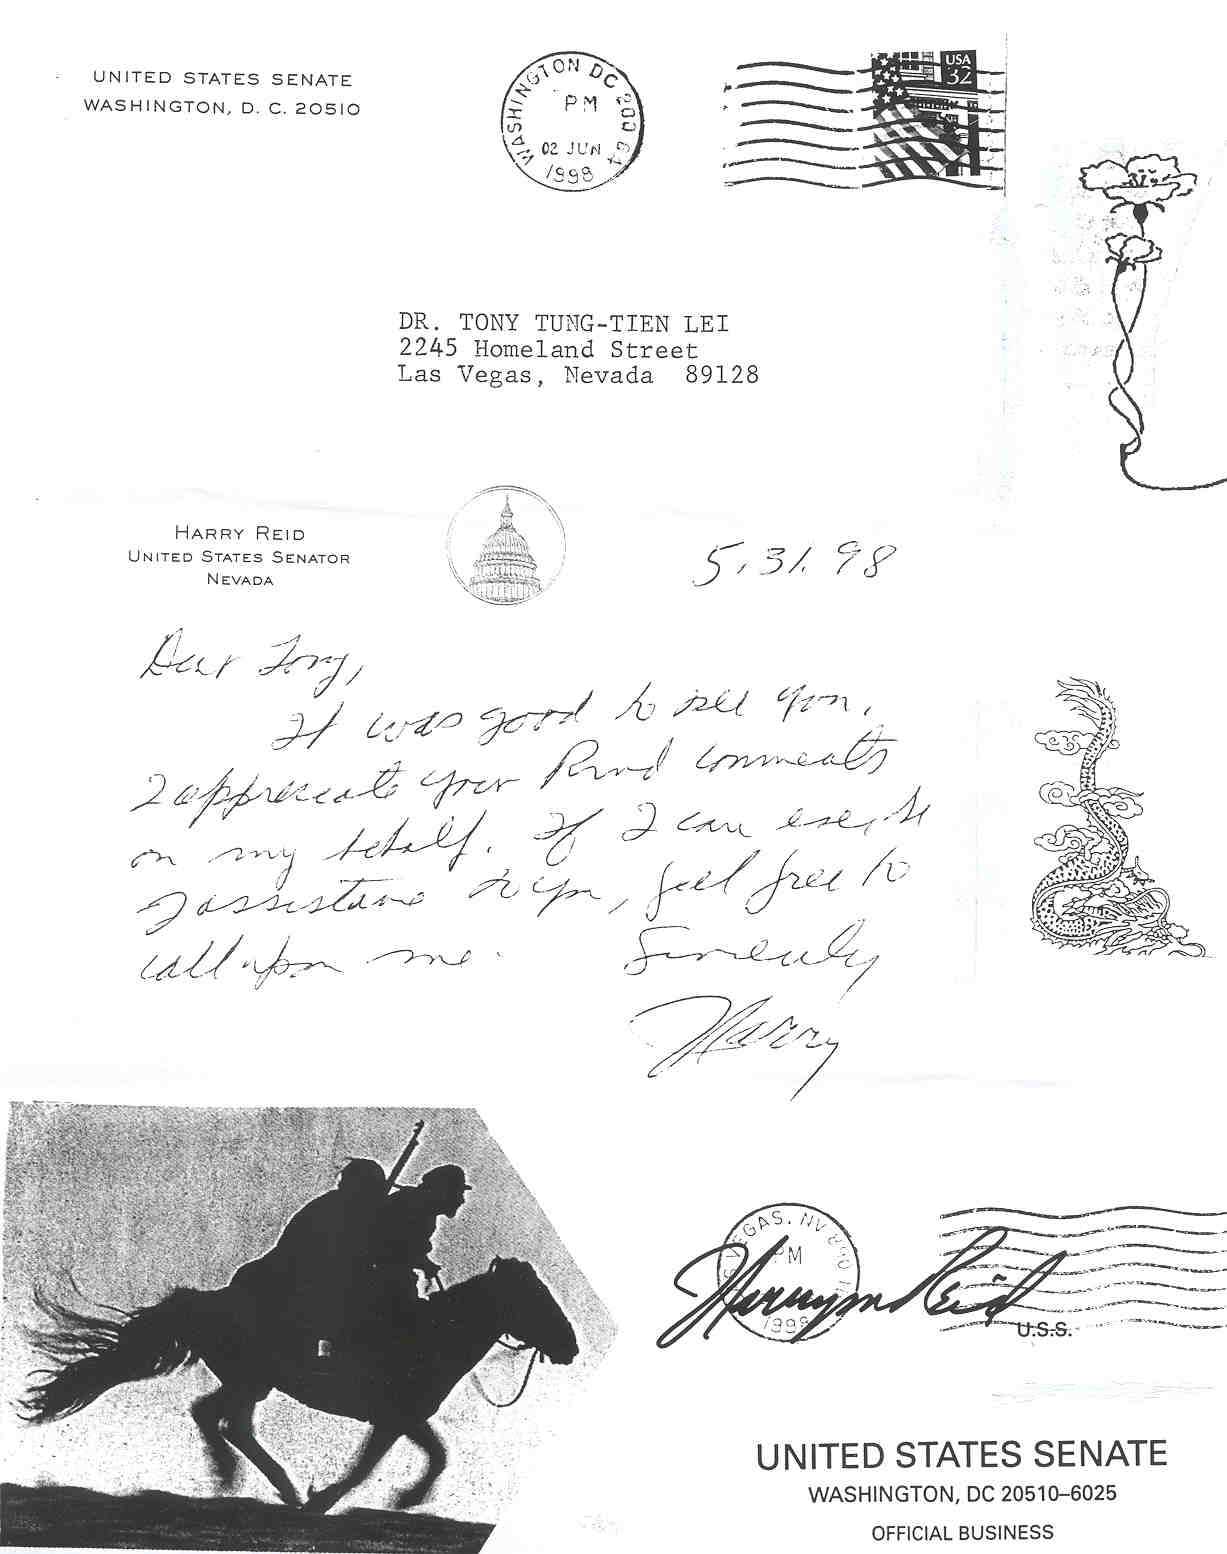 UNITED STATES SENATE
WASHINGTON, D. C. 20510
WASHINGTON DC 200 64
PM
02 JUN
1998
USA
32
DR. TONY TUNG-TIEN LEI
2245 Homeland Street
Las Vegas, Nevada 89128
HARRY REID
UNITED STATES SENATOR
NEVADA
5.31.98
Dear Tony,
It was good to see you.
I appreciate your kind comments
on my behalf. If I can ever be
of assistance to you, feel free to
call upon me.
Sincerely
Harry
VEGAS, NV
PM
1998
Harry Reid
U.S.S.
UNITED STATES SENATE
WASHINGTON, DC 20510–6025
OFFICIAL BUSINESS